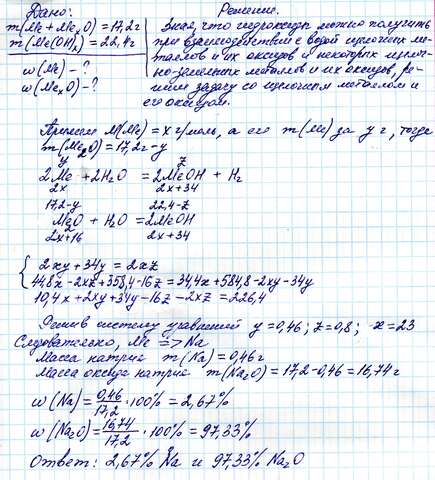 Дано:
m(Me + MeₓO) = 17,2г
m(Me(OH)ₓ) = 22,4г
ω(Me) - ?
ω(MeₓO) - ?
Решение.
Зная, что гидроксиды можно получить
при взаимодействии с водой щелочных ме-
таллов и их оксидов и некоторых щелоч-
но-земельных металлов и их оксидов, ре-
шим задачу со щелочным металлом и
его оксидом.
Примем M(Me) = x г/моль, а его m(Me) за y г, тогда
m(Me₂O) = 17,2г - y
y z
2Me + 2H₂O = 2MeOH + H₂
2x 2x+34
17,2-y 22,4-z
Me₂O + H₂O = 2MeOH
2x+16 2x+34
2xy + 34y = 2xz
44,8x - 2xz + 358,4 - 16z = 34,4x + 584,8 - 2xy - 34y
10,4x + 2xy + 34y - 16z - 2xz = 226,4
Решив систему уравнений y = 0,46; z = 0,8; x = 23
Следовательно, Me => Na
Масса натрия m(Na) = 0,46г
Масса оксида натрия m(Na₂O) = 17,2 - 0,46 = 16,74г
ω(Na) = 0,46/17,2 · 100% = 2,67%
ω(Na₂O) = 16,74/17,2 · 100% = 97,33%
Ответ: 2,67% Na и 97,33% Na₂O